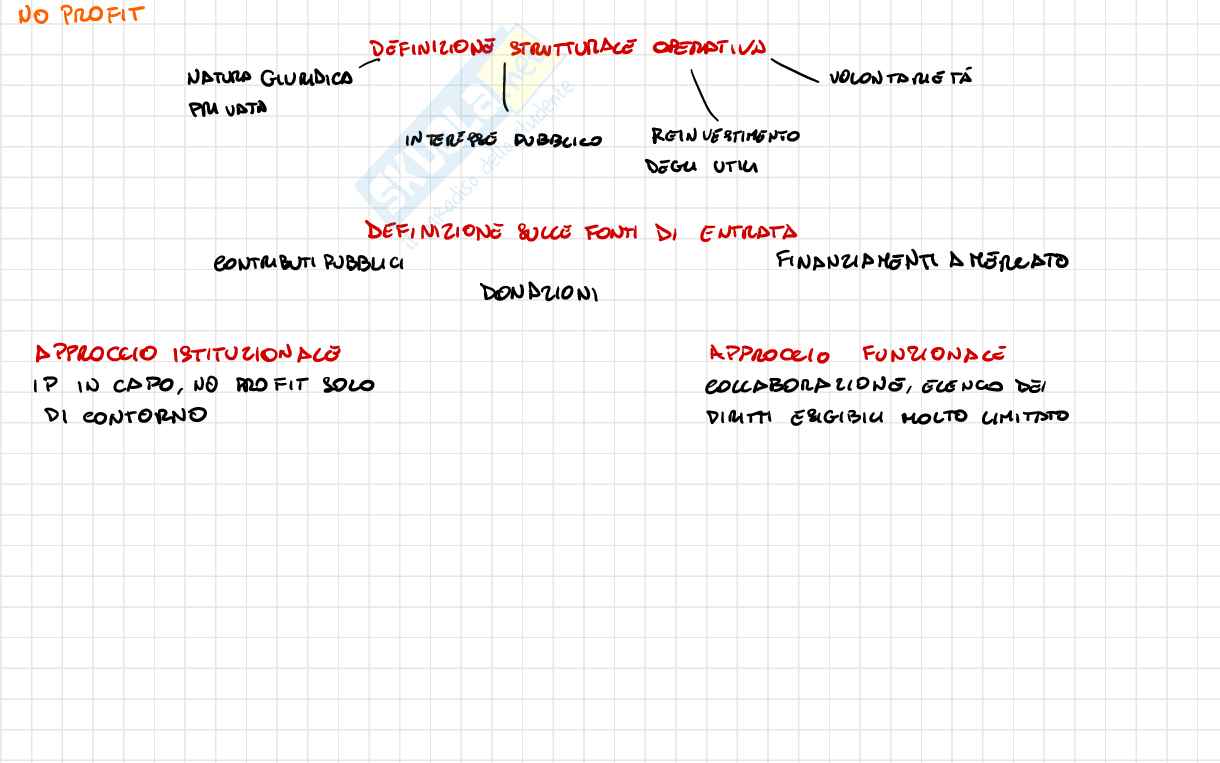 NO PROFIT
DEFINIZIONE STRUTTURALE OPERATIVA
NATURA GIURIDICA
PRIVATA
VOLONTARIETÀ
INTERESSE PUBBLICO
REINVESTIMENTO
DEGLI UTILI
SKUOLA.net
il paradiso dello studente
DEFINIZIONE SULLE FONTI DI ENTRATA
CONTRIBUTI PUBBLICI
FINANZIAMENTI A MERCATO
DONAZIONI
APPROCCIO ISTITUZIONALE
IP IN CAPO, NO PROFIT SOLO
DI CONTORNO
APPROCCIO FUNZIONALE
COLLABORAZIONE, ELENCO DEI
DIRITTI ESIGIBILI MOLTO LIMITATO